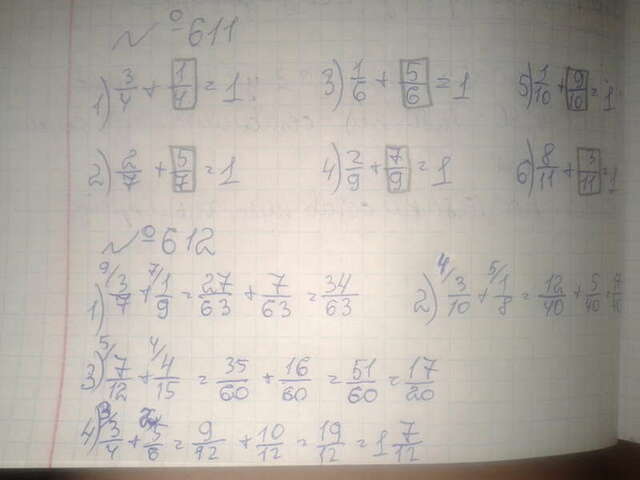 № 611
1) 3/4 + 1/4 = 1 3) 1/6 + 5/6 = 1 5) 1/10 + 9/10 = 1
2) 2/7 + 5/7 = 1 4) 2/9 + 7/9 = 1 6) 8/11 + 3/11 = 1
№ 612
1) 9/ 3/7 + 7/ 1/9 = 27/63 + 7/63 = 34/63 2) 4/ 3/10 + 5/ 1/8 = 12/40 + 5/40 =
3) 5/ 7/12 + 4/ 4/15 = 35/60 + 16/60 = 51/60 = 17/20
4) 3/ 3/4 + 5/6 = 9/12 + 10/12 = 19/12 = 1 7/12